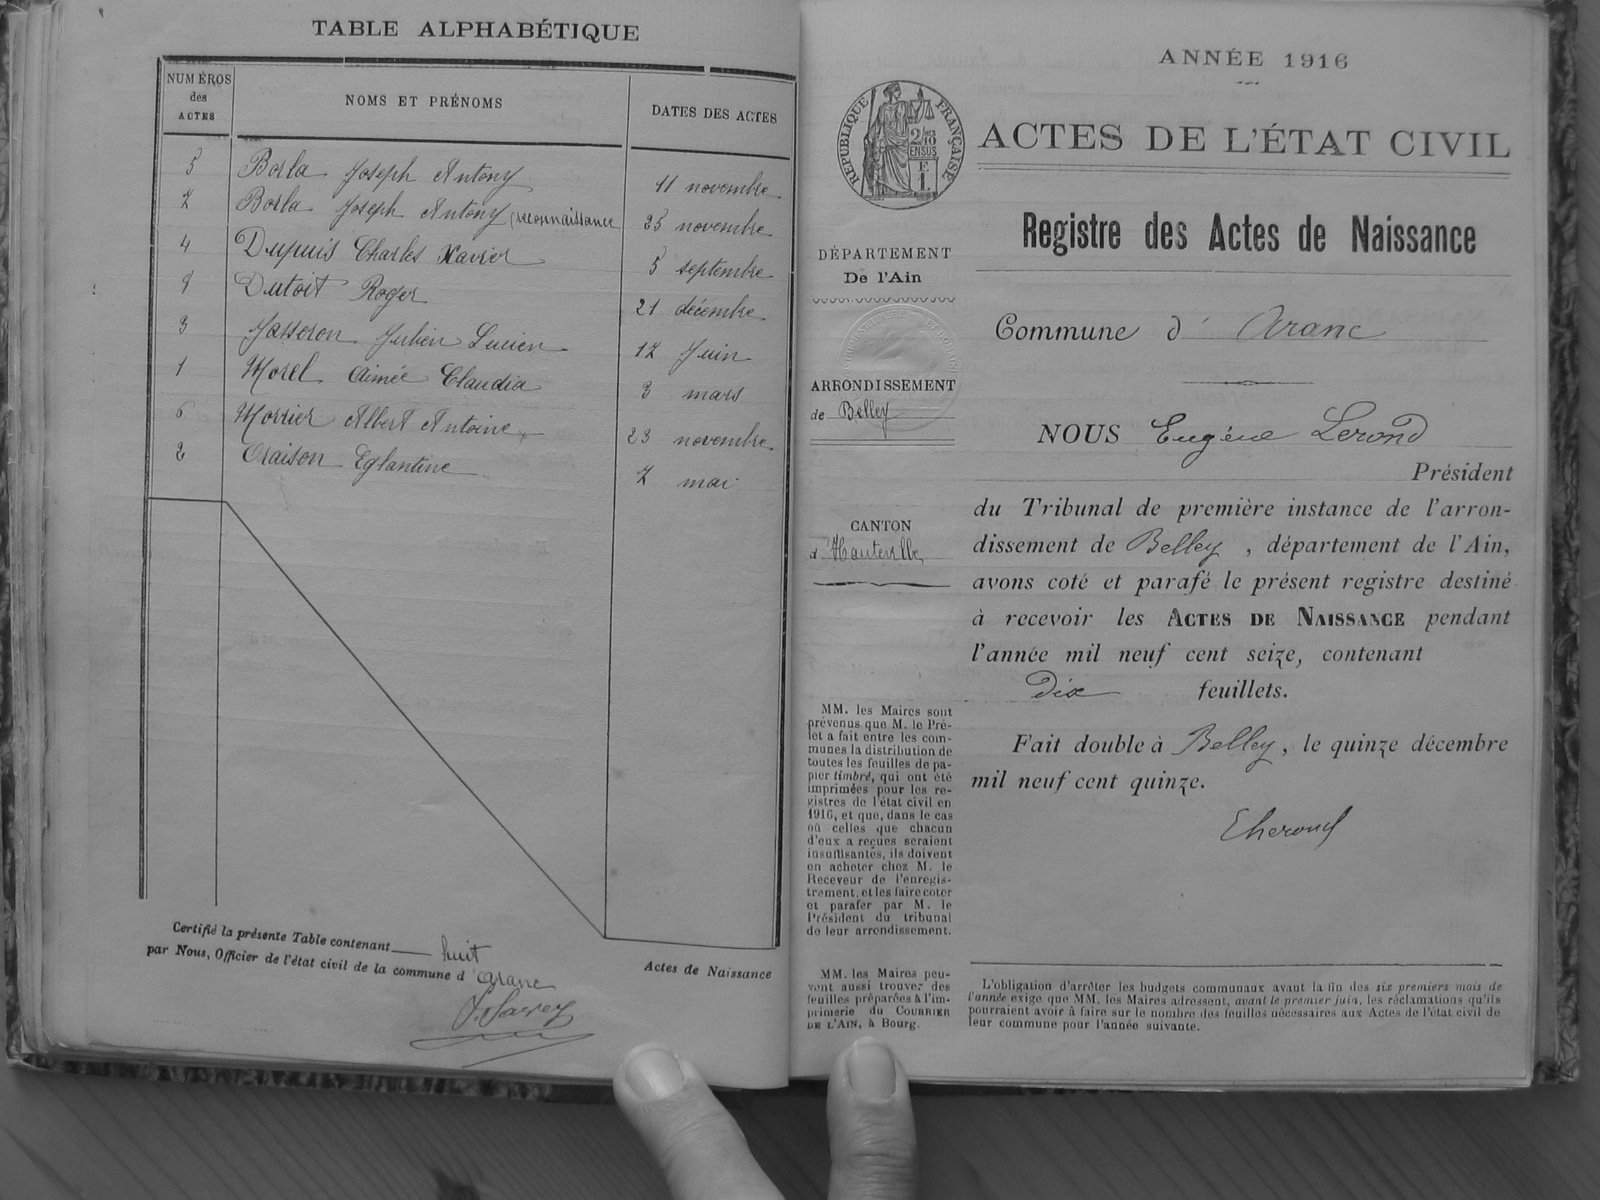 TABLE ALPHABÉTIQUE
NUMÉROS des ACTES
NOMS ET PRÉNOMS
DATES DES ACTES
5 Borla Joseph Antony 11 novembre
7 Borla Joseph Antony (reconnaissance 25 novembre
4 Dupuis Charles Xavier 5 septembre
8 Dutoit Roger 21 décembre
3 Jasseron Julien Lucien 17 Juin
1 Morel Aimée Claudia 3 mars
6 Morrier Albert Antoine 23 novembre
2 Oraison Eglantine 7 mai
Certifié la présente Table contenant huit Actes de Naissance
par Nous, Officier de l'état civil de la commune d'Aranc
ANNÉE 1916
RÉPUBLIQUE FRANÇAISE
2/10
EN SUS
F
1.
ACTES DE L'ÉTAT CIVIL
Registre des Actes de Naissance
DÉPARTEMENT
De l'Ain
ARRONDISSEMENT
de Belley
CANTON
d'Hauteville
MM. les Maires sont
prévenus que M. le Pré-
fet a fait entre les com-
munes la distribution de
toutes les feuilles de pa-
pier timbré, qui ont été
imprimées pour les re-
gistres de l'état civil en
1916, et que, dans le cas
où celles que chacun
d'eux a reçues seraient
insuffisantes, ils doivent
en acheter chez M. le
Receveur de l'enregis-
trement, et les faire coter
et parafer par M. le
Président du tribunal
de leur arrondissement.
MM. les Maires peu-
vent aussi trouver des
feuilles préparées à l'im-
primerie du COURRIER
DE L'AIN, à Bourg.
Commune d'Aranc
NOUS Eugène Lerond
Président
du Tribunal de première instance de l'arron-
dissement de Belley, département de l'Ain,
avons coté et parafé le présent registre destiné
à recevoir les ACTES DE NAISSANCE pendant
l'année mil neuf cent seize, contenant
Dix feuillets.
Fait double à Belley, le quinze décembre
mil neuf cent quinze.
L'obligation d'arrêter les budgets communaux avant la fin des six premiers mois de
l'année exige que MM. les Maires adressent, avant le premier juin, les réclamations qu'ils
pourraient avoir à faire sur le nombre des feuilles nécessaires aux Actes de l'état civil de
leur commune pour l'année suivante.